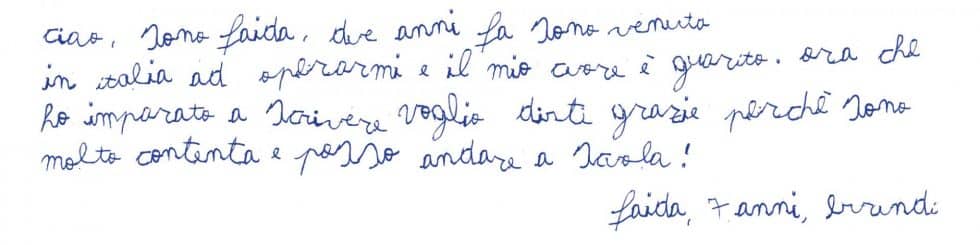 ciao, sono faida, due anni fa sono venuta
in italia ad operarmi e il mio cuore è guarito. ora che
ho imparato a scrivere voglio dirti grazie perchè sono
molto contenta e posso andare a scuola!
faida, 7 anni, burundi